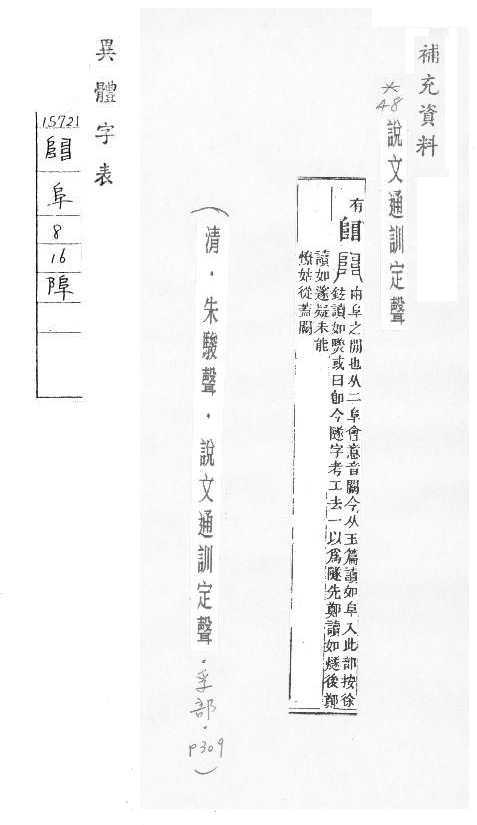 補充資料
*
48
說文通訓定聲
有
𨺅
兩阜之閒也从二阜會意音闕今从玉篇讀如阜入此部按徐
鉉讀如煚或曰卽今隧字考工去一以爲隧先鄭讀如燧後鄭
讀如邃疑未能
憭姑從蓋闕
(清.朱駿聲.說文通訓定聲.孚部.P309)
異體字表
15721
𨺅
阜
8
16
䧌